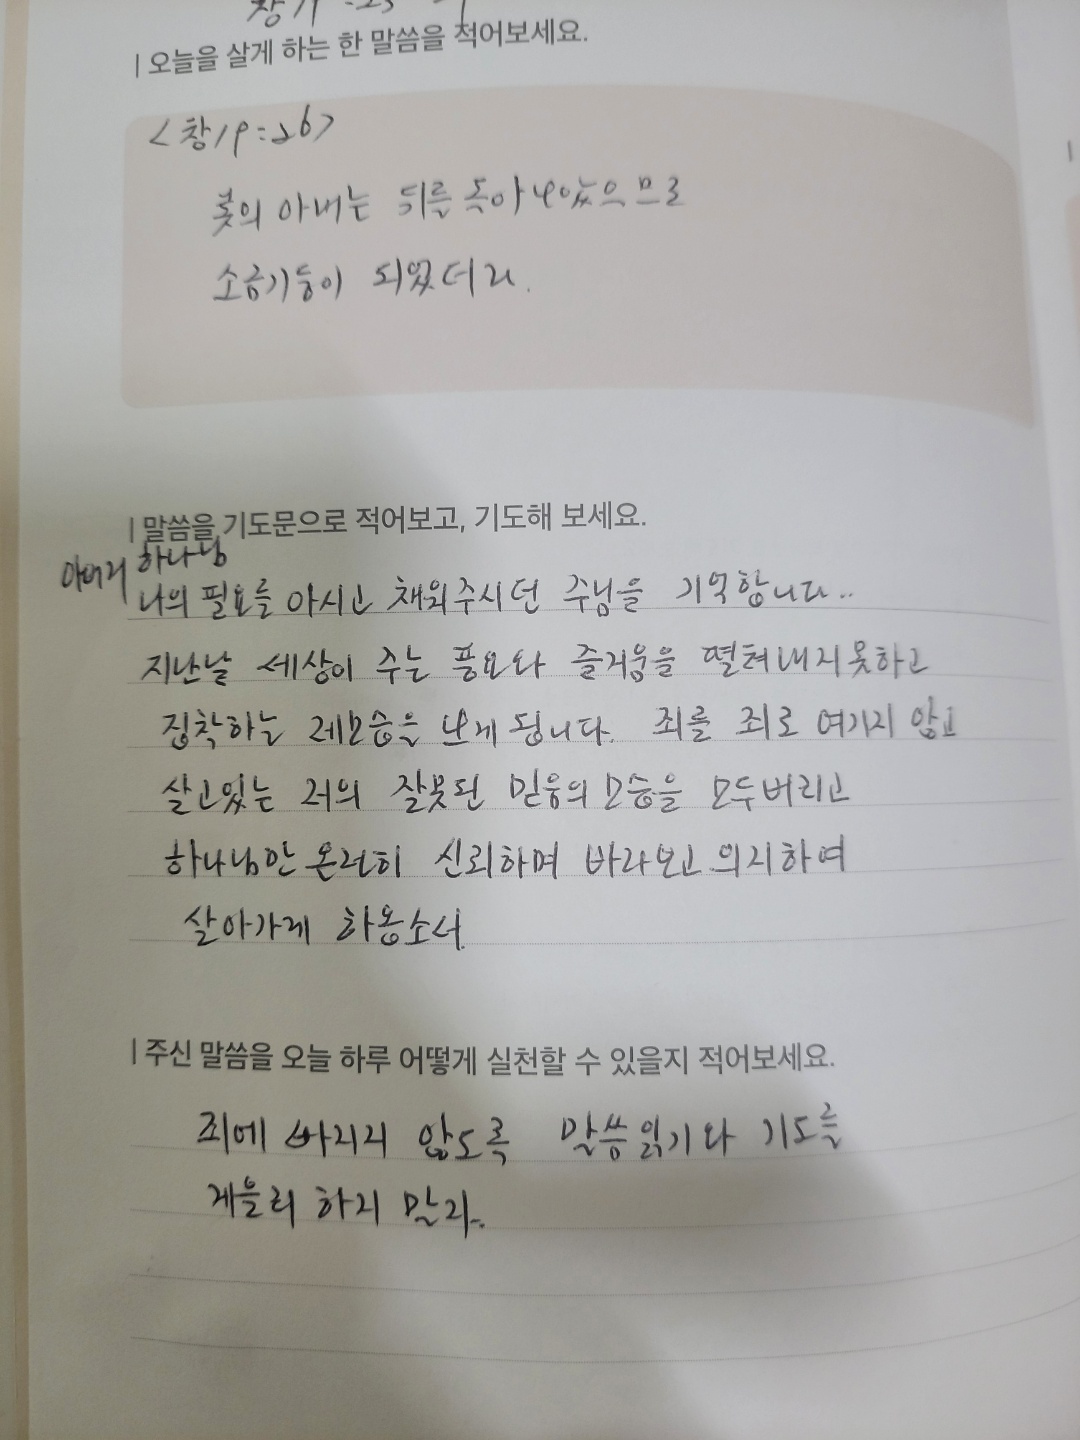 창19:23
| 오늘을 살게 하는 한 말씀을 적어보세요.
<창19:26>
롯의 아내는 뒤를 돌아 보았으므로
소금기둥이 되었더라.
| 말씀을 기도문으로 적어보고, 기도해 보세요.
아버지 하나님
나의 필요를 아시고 채워주시던 주님을 기억합니다..
지난날 세상이 주는 풍요와 즐거움을 떨쳐내지못하고
집착하는 제모습을 보게 됩니다. 죄를 죄로 여기지 않고
살고있는 저의 잘못된 믿음의 모습을 모두버리고
하나님만 온전히 신뢰하며 바라보고 의지하여
살아가게 하옵소서.
| 주신 말씀을 오늘 하루 어떻게 실천할 수 있을지 적어보세요.
죄에 빠지지 않도록 말씀읽기와 기도를
게을리 하지 말자..